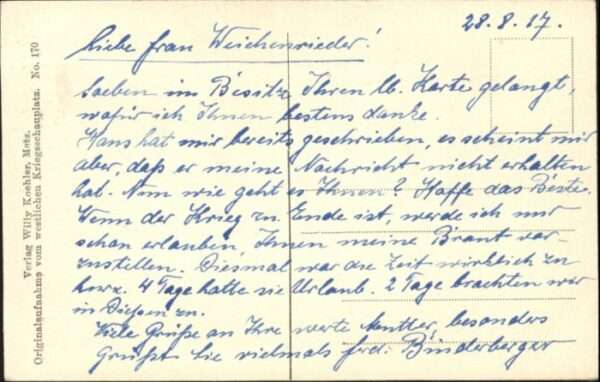 28.8.17.
Liebe Frau Weichenrieder!
Soeben im Besitze Ihren lb. Karte gelangt,
wofür ich Ihnen bestens danke.
Hans hat mir bereits geschrieben, es scheint mir
aber, daß er meine Nachricht nicht erhalten
hab. Nun wie geht es Ihnen? Hoffe das Beste.
Wenn der Krieg zu Ende ist, werde ich mir
schon erlauben Ihnen meine Braut vor-
zustellen. Diesmal war die Zeit wirklich zu
kurz. 4 Tage hatte sie Urlaub. 2 Tage brachten wir
in Dießen zu.
Viele Grüße an Ihre werte Mutter, besonders
Grüßt Sie vielmals Ferd. Binderberger
Verlag Willy Koehler, Metz.
Originalaufnahme vom westlichen Kriegsschauplatz. No. 170